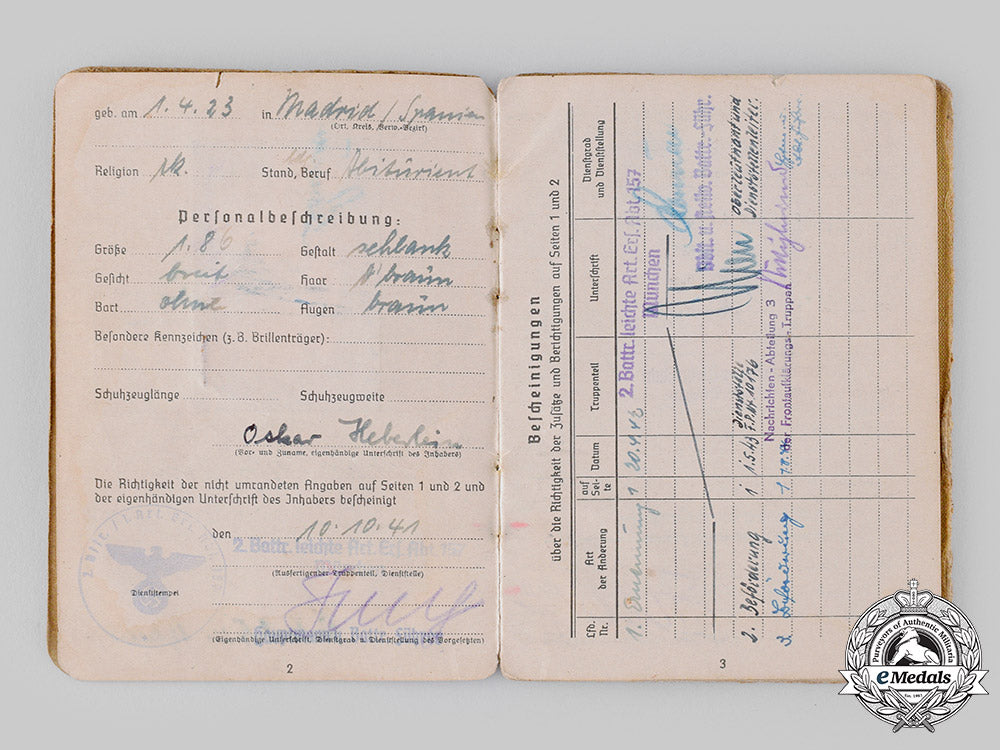 geb. am 1. 4. 23 in Madrid / Spanien
(Ort, Kreis, Verw.-Bezirk)
Religion rk. Stand, Beruf Abitürient
Personalbeschreibung:
Größe 1.86 Gestalt schlank
Gesicht breit Haar d'braün
Bart ohne Augen braün
Besondere Kennzeichen (z. B. Brillenträger):
Schuhzeuglänge Schuhzeugweite
Oskar Heberlein
(Vor- und Zuname, eigenhändige Unterschrift des Inhabers)
Die Richtigkeit der nicht umrandeten Angaben auf Seiten 1 und 2 und
der eigenhändigen Unterschrift des Inhabers bescheinigt
den 10.10.41
2. Battr. leichte Art. Ers. Abt. 157
(Ausfertigender Truppenteil, Dienststelle)
Dienststempel
(Eigenhändige Unterschrift, Dienstgrad u. Dienststellung des Vorgesetzten)
2
Bescheinigungen
über die Richtigkeit der Zusätze und Berichtigungen auf Seiten 1 und 2
Lfd. Nr.
Art der Änderung
auf Sei-te
Datum
Truppenteil
Unterschrift
Dienstgrad und Dienststellung
1. Ernennung 1 20.4.43 2. Battr. leichte Art. Ers. Abt. 157
München
Oblt. u. Battr.-Führ.
2. Beförderung 1 1.5.43 Dienststelle F.P.Nr 10176 Oberleutnant und Dienststellenleiter.
3. Beförderung 1 Nachrichten-Abteilung 3
der Frontaufklärungs-Truppen
3
Purveyors of Authentic Militaria
eMedals
Est. 1967